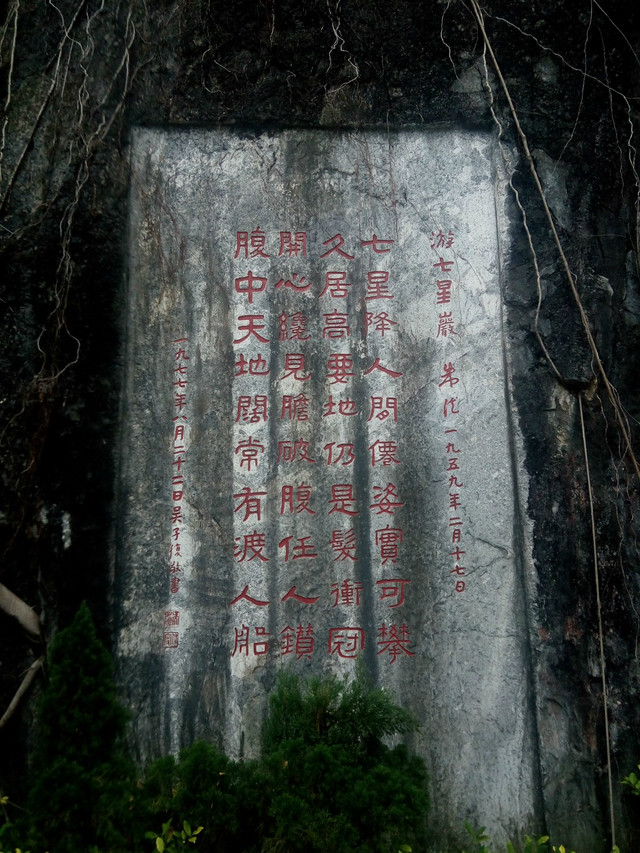 游七星巖 朱德 一九五九年二月十七日
七星降人間僊姿實可攀
久居高要地仍是髮衝冠
開心纔見膽破腹任人鑽
腹中天地闊常有渡人船
一九七七年八月二十二日吴子復敬書